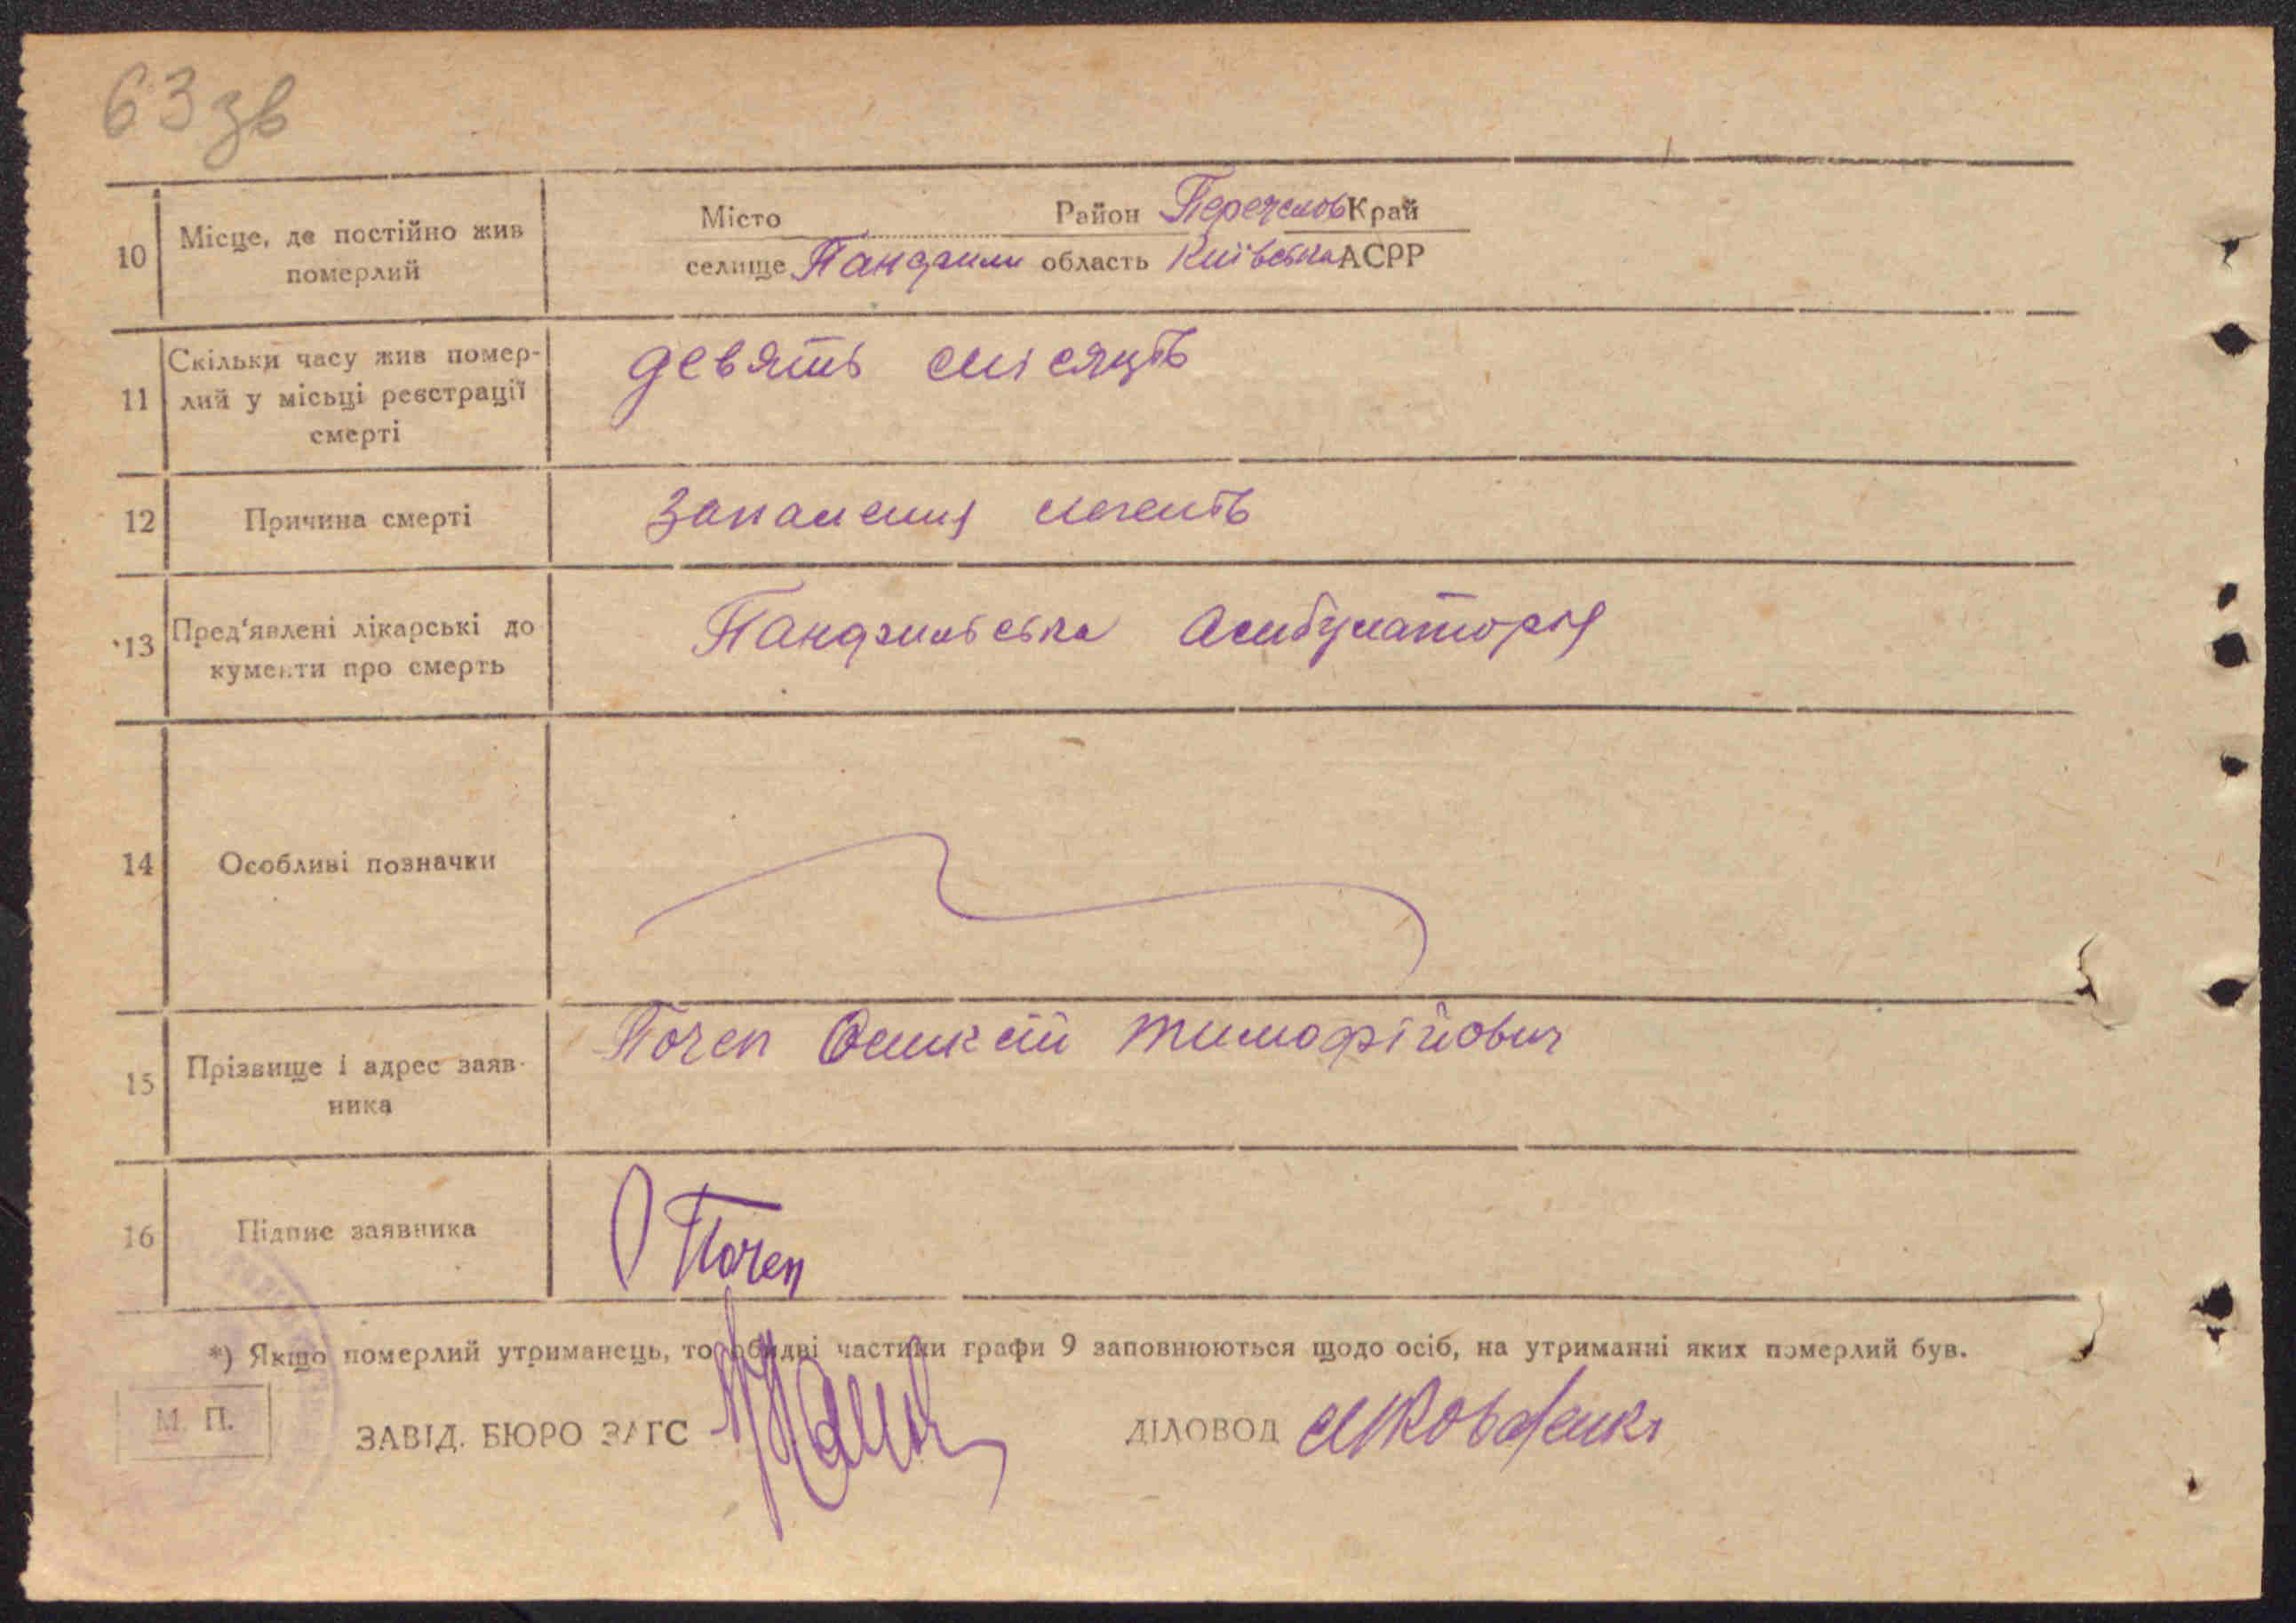 63 зв
10 Місце, де постійно жив померлий
Місто Район Переяслов Край
селище Пандзили область Київська АСРР
11 Скільки часу жив помер-
лий у місьці реєстрації
смерті
девять місяців
12 Причина смерті
Запаления легенів
13 Пред'явлені лікарські до
кументи про смерть
Пандзильська Амбулаторія
14 Особливі позначки
15 Прізвище і адрес заяв-
ника
Почеп Олексій Тимофійович
16 Підпис заявника
О Почеп
*) Якщо померлий утриманець, то обидві частини графи 9 заповнюються щодо осіб, на утриманні яких померлий був.
М. П.
ЗАВІД. БЮРО ЗАГС
ДІЛОВОД